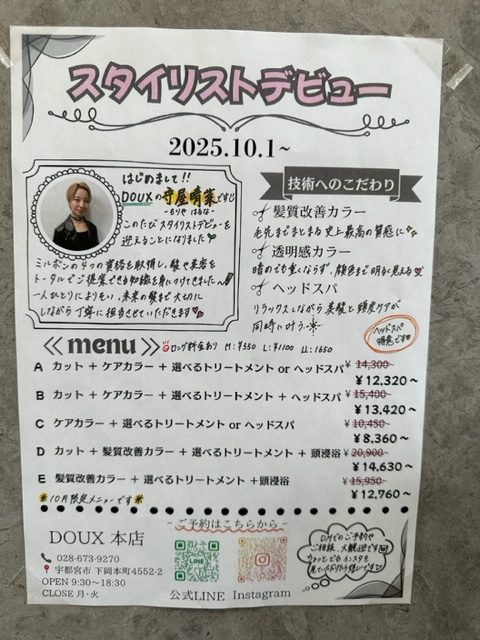 スタイリストデビュー
2025.10.1~
はじめまして!!
DOUXの守屋晴菜です
-もりや はるな-
このたびスタイリストデビューを
迎えることになりました
ミルボンの4つの資格を取得し、髪や美容を
トータルでご提案できる知識を身につけてきました
一人ひとりによりそい、未来の髪まで大切に
しながら丁寧に担当させていただきます
技術へのこだわり
髪質改善カラー
毛先までまとまる史上最高の質感に
透明感カラー
暗めでも重くならず、顔色まで明るく見える
ヘッドスパ
リラックスしながら美髪と頭皮ケアが
同時に叶う
ヘッドスパ
得意です
menu
ロング料金あり M:¥550 L:¥1100 LL:1650
A カット + ケアカラー + 選べるトリートメント or ヘッドスパ ¥14,300~
¥12,320~
B カット + ケアカラー + 選べるトリートメント + ヘッドスパ ¥15,400~
¥13,420~
C ケアカラー + 選べるトリートメント or ヘッドスパ ¥10,450
¥8,360~
D カット + 髪質改善カラー + 選べるトリートメント + 頭浸浴 ¥20,900~
¥14,630~
E 髪質改善カラー + 選べるトリートメント +頭浸浴 ¥15,950
¥12,760~
10月限定メニューです
ご予約はこちらから
DOUX 本店
028-673-9270
宇都宮市 下岡本町4552-2
OPEN 9:30~18:30
CLOSE 月・火
公式LINE Instagram
DMでのご予約や
ご相談、大歓迎です
ちょっとでもインスタを